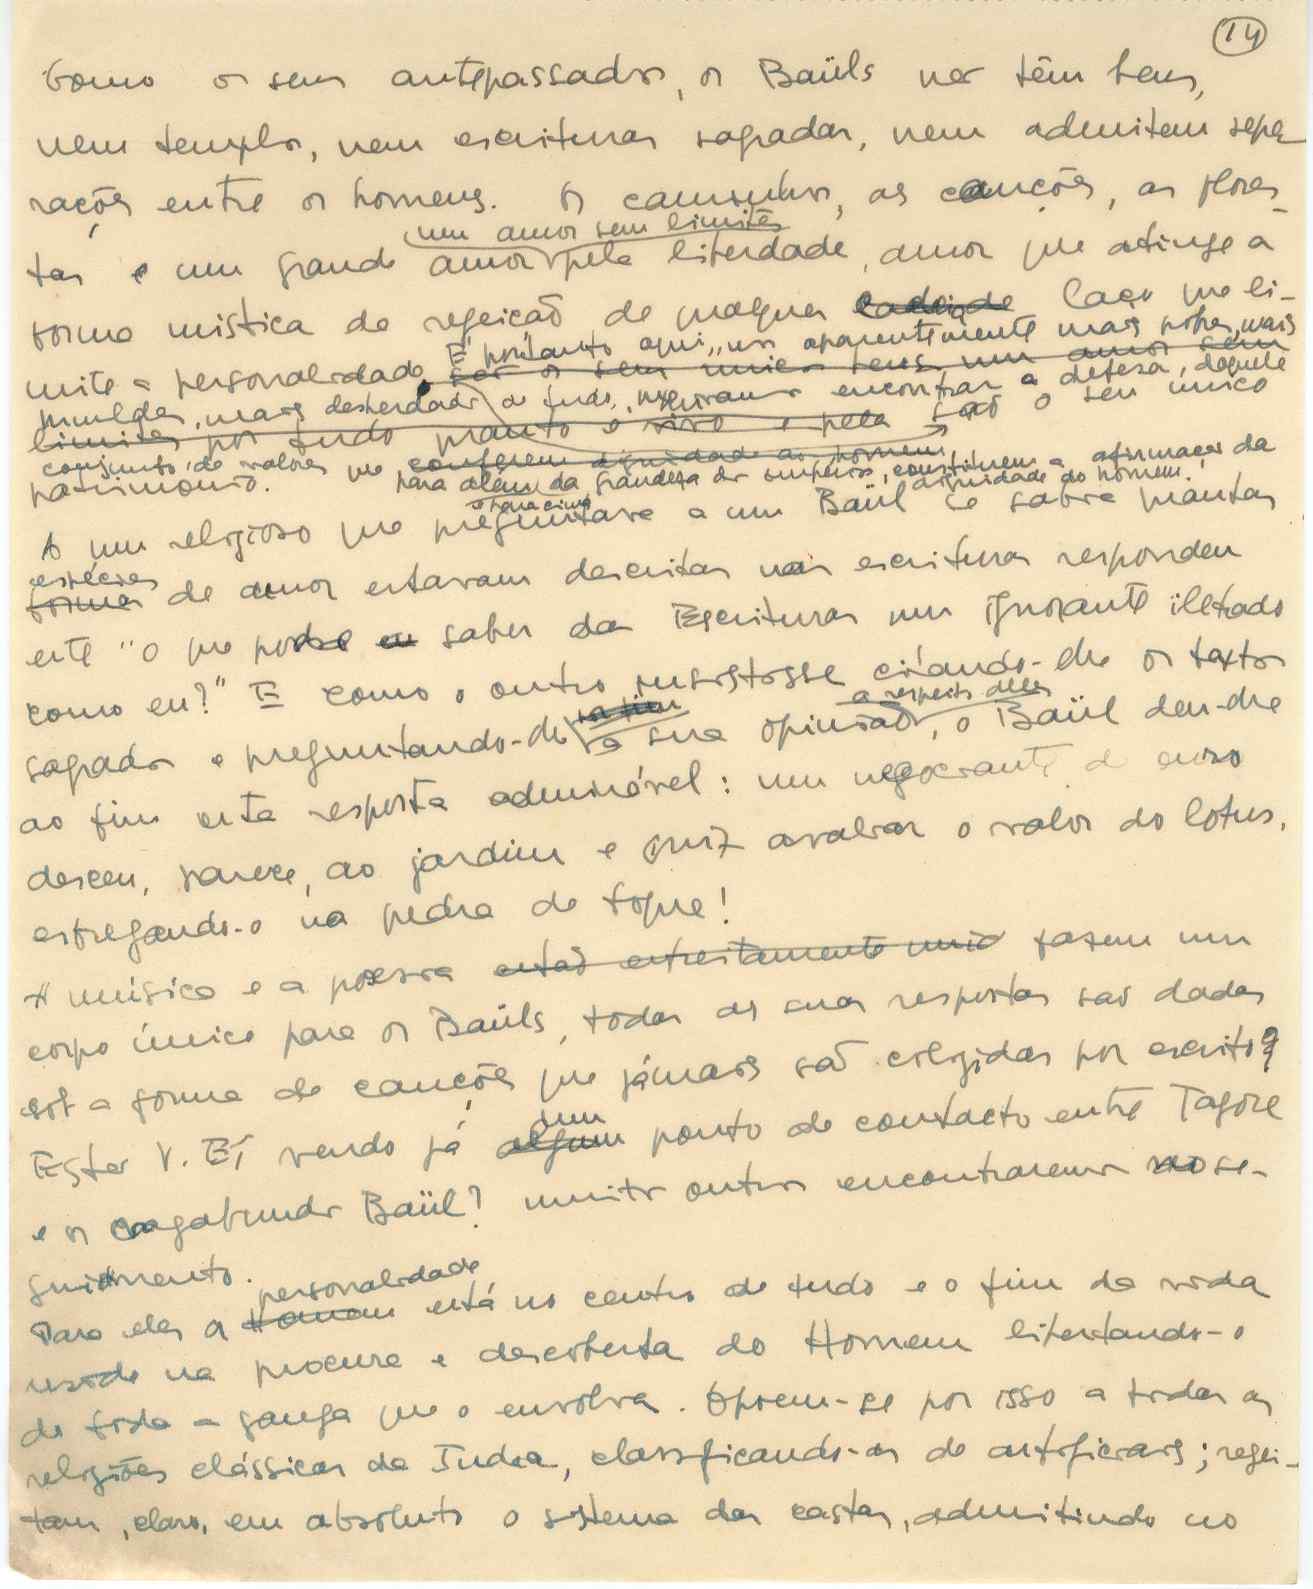 14
Como os seus antepassados, os Baüls não têm bens,
nem templos, nem escrituras sagradas, nem admitem sepa
rações entre os homens. Os caminhos, as canções, as flores-
um amor sem limites
tas e um grande amor pela liberdade, amor que atinge a
forma mística de rejeição de qualquer cadeia de laço que li-
mite a personalidade
E' portanto aqui, nos aparentemente mais pobres, mais
ser os seus unicos bens, um amor sem
humildes, mais desherdados de tudo, encontrar a defesa, daquele
limites por tudo quanto é vivo e pela são o seu unico
conjunto de valores que conferem dignidade ao homem
para além da grandeza dos imperios, constituem a afirmação da
dignidade do homem.
património.
A um religioso que preguntava a um Baül se sabia quantas
espécies
formas de amor estavam descritas nas escrituras respondeu
este "o que pode saber das Escrituras um ignorante iletrado
como eu?" E como o outro insistisse citando-lhe os textos
a respeito deles
sagrados e preguntando-lhe a sua opinião, o Baül deu-lhe
ao fim esta resposta admirável: um negociante de ouro
desceu, parece, ao jardim e quiz avaliar o valor do lotus,
esfregando-o na pedra de toque!
A música e a poesia estão estreitamente unid fazem um
corpo único para os Baüls, todas as suas respostas são dadas
sob a forma de canções que jámais são coligidas por escrito
dum
Ester V. Eí vendo já algum ponto de contacto entre Tagore
e os vagabundos Baül? muitos outros encontraremos no se-
guimento.
personalidade
Para eles a Homem está no centro de tudo e o fim da vida
reside na procura e descoberta do Homem libertando-o
de toda a ganga que o envolva. Opoem-se por isso a todas as
religiões clássicas da India, classificando-as de artificiais; rejei-
tam, claro, em absoluto o sistema das castas, admitindo no